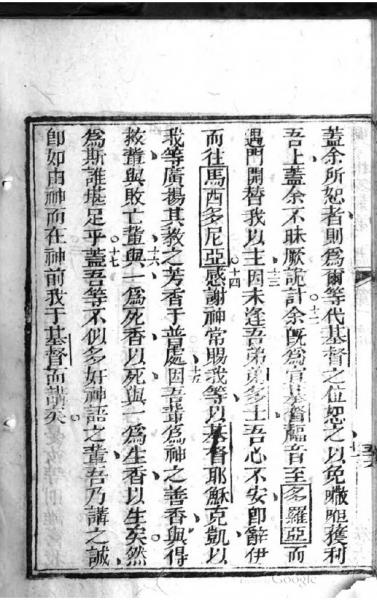 蓋余所恕者則為爾等代基督之位恕之十一以免獲利
吾上蓋余不昧厥詭計十二余既為宣基督福音至多羅亞而
遇門開替我以主十三因未逢吾弟弟多士吾心不安卽辭伊
而往馬西多尼亞十四感謝神常賜我等以基督耶穌克凱以
我等廣揚其教之芳香于普處十五因吾輩為神之善香與得
救輩與敗亡輩十六與一為死香以死與一為生香以生矣然
為斯誰堪足乎十七蓋吾等不似多奸神語之輩吾乃講之誠
卽如由神而在神前我于基督而講矣
Google